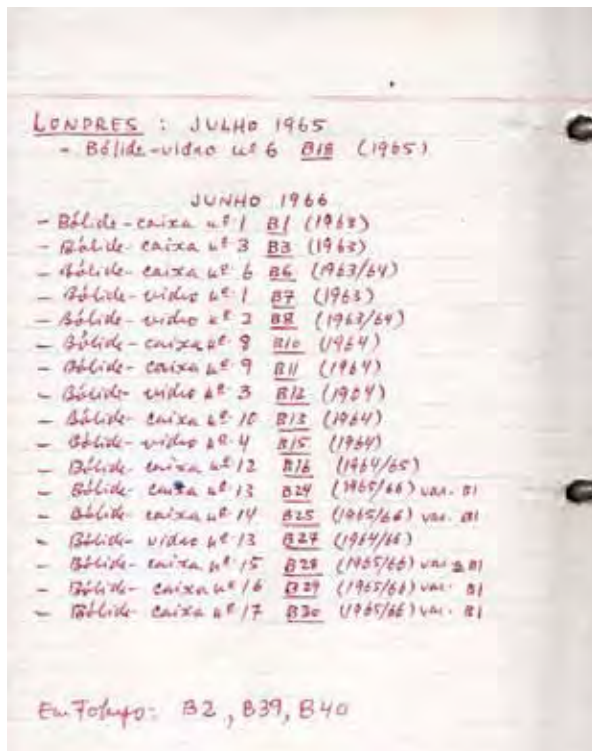 LONDRES : JULHO 1965
- Bólide-vidro nº 6 B18 (1965)
JUNHO 1966
- Bólide-caixa nº 1 B1 (1963)
- Bólide-caixa nº 3 B3 (1963)
- Bólide-caixa nº 6 B6 (1963/64)
- Bólide-vidro nº 1 B7 (1963)
- Bólide-vidro nº 2 B8 (1963/64)
- Bólide-caixa nº 8 B10 (1964)
- Bólide-caixa nº 9 B11 (1964)
- Bólide-vidro nº 3 B12 (1964)
- Bólide-caixa nº 10 B13 (1964)
- Bólide-vidro nº 4 B15 (1964)
- Bólide-caixa nº 12 B16 (1964/65)
- Bólide-caixa nº 13 B24 (1965/66) var. B1
- Bólide-caixa nº 14 B25 (1965/66) var. B1
- Bólide-vidro nº 13 B27 (1964/66)
- Bólide-caixa nº 15 B28 (1965/66) var. B1
- Bólide-caixa nº 16 B29 (1965/66) var. B1
- Bólide-caixa nº 17 B30 (1965/66) var. B1
Em : B2, B39, B40